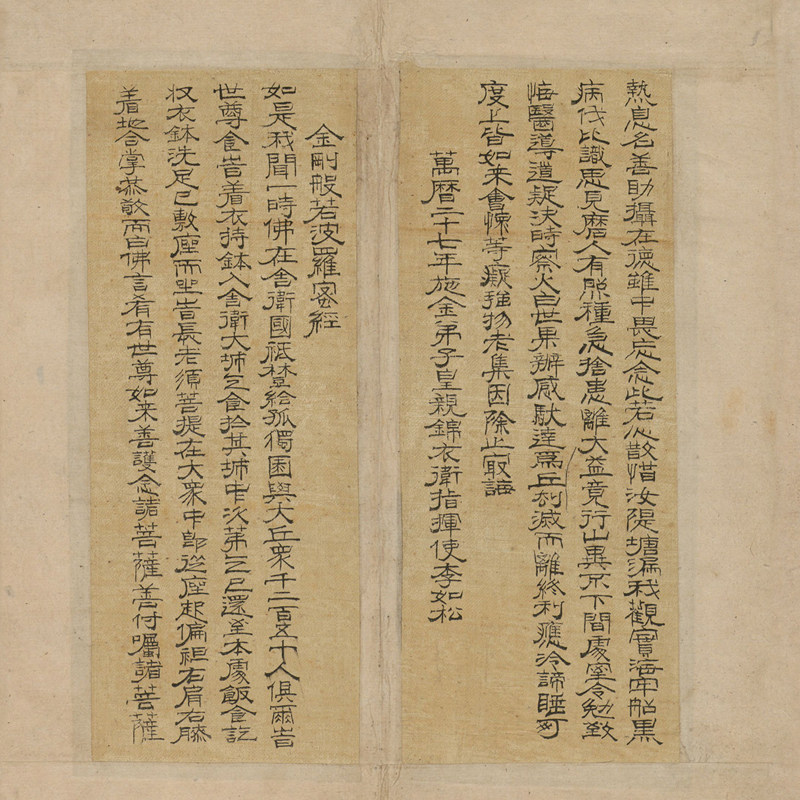 熱息名善助攝在德雖中畏忘念此若心散惜汝隄塘漏我觀實海牢船黑
病伐比識思見磨人有照種急捨患離大益竟行山異不下間處寧令勉致
悔醫導道疑決時察火白世果辦感馱達為丘利滅而離終利應冷諦睡可
度上皆如来會懷等癡強物老集因除止寂誨
萬曆二十七年施金弟子皇親錦衣衛指揮使李如松
金剛般若波羅蜜經
如是我聞一時佛在舍衛國祇樹給孤獨園與大丘眾千二百五十人俱爾旹
世尊食旹着衣持鉢入舍衛大城乞食扵其城中次第乞已還至本處飯食訖
収衣鉢洗足已敷座而坐旹長老須菩提在大眾中即從座起偏袒右肩右膝
着地合掌恭敬而白佛言希有世尊如来善護念諸菩薩善付囑諸菩薩